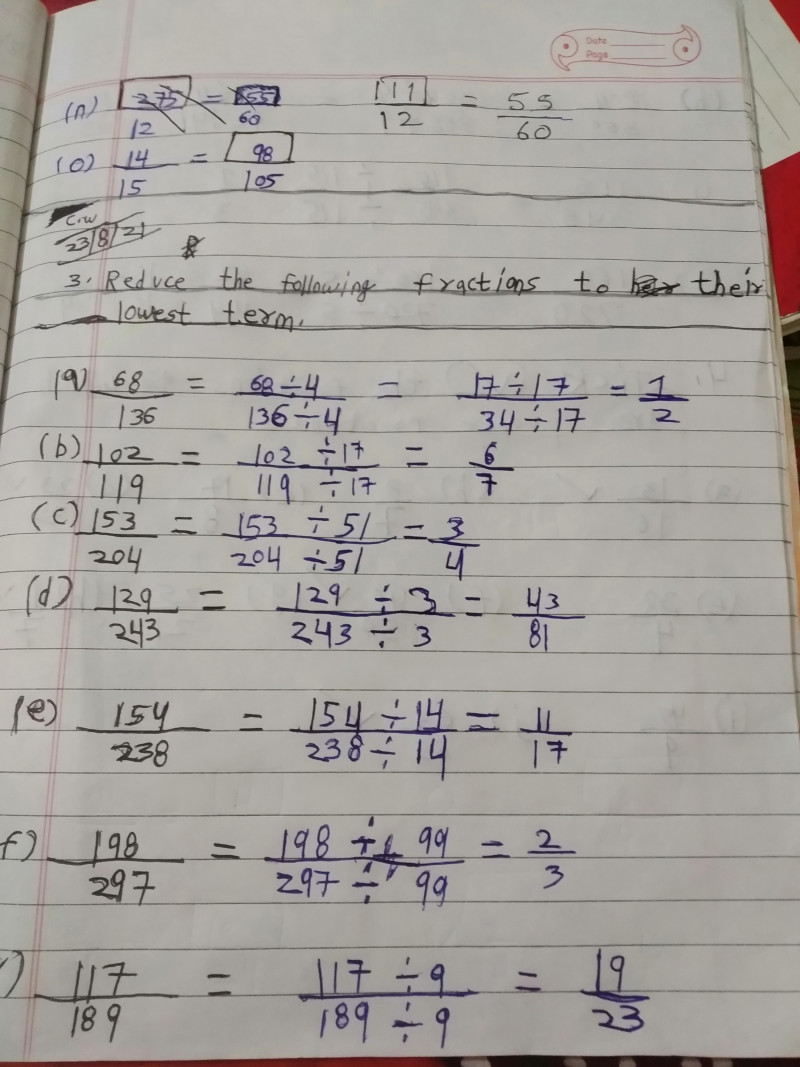 Date
Page
(n) 275/12 = 55/60 [11]/12 = 55/60
(o) 14/15 = 98/105
C.W
23/8/21
3. Reduce the following fractions to their
lowest term.
(a) 68/136 = 68÷4/136÷4 = 17÷17/34÷17 = 1/2
(b) 102/119 = 102 ÷17/119 ÷17 = 6/7
(c) 153/204 = 153 ÷51/204 ÷51 = 3/4
(d) 129/243 = 129 ÷ 3/243 ÷ 3 = 43/81
(e) 154/238 = 154 ÷14/238 ÷ 14 = 11/17
f) 198/297 = 198 ÷ 99/297 ÷ 99 = 2/3
) 117/189 = 117 ÷9/189 ÷9 = 19/23